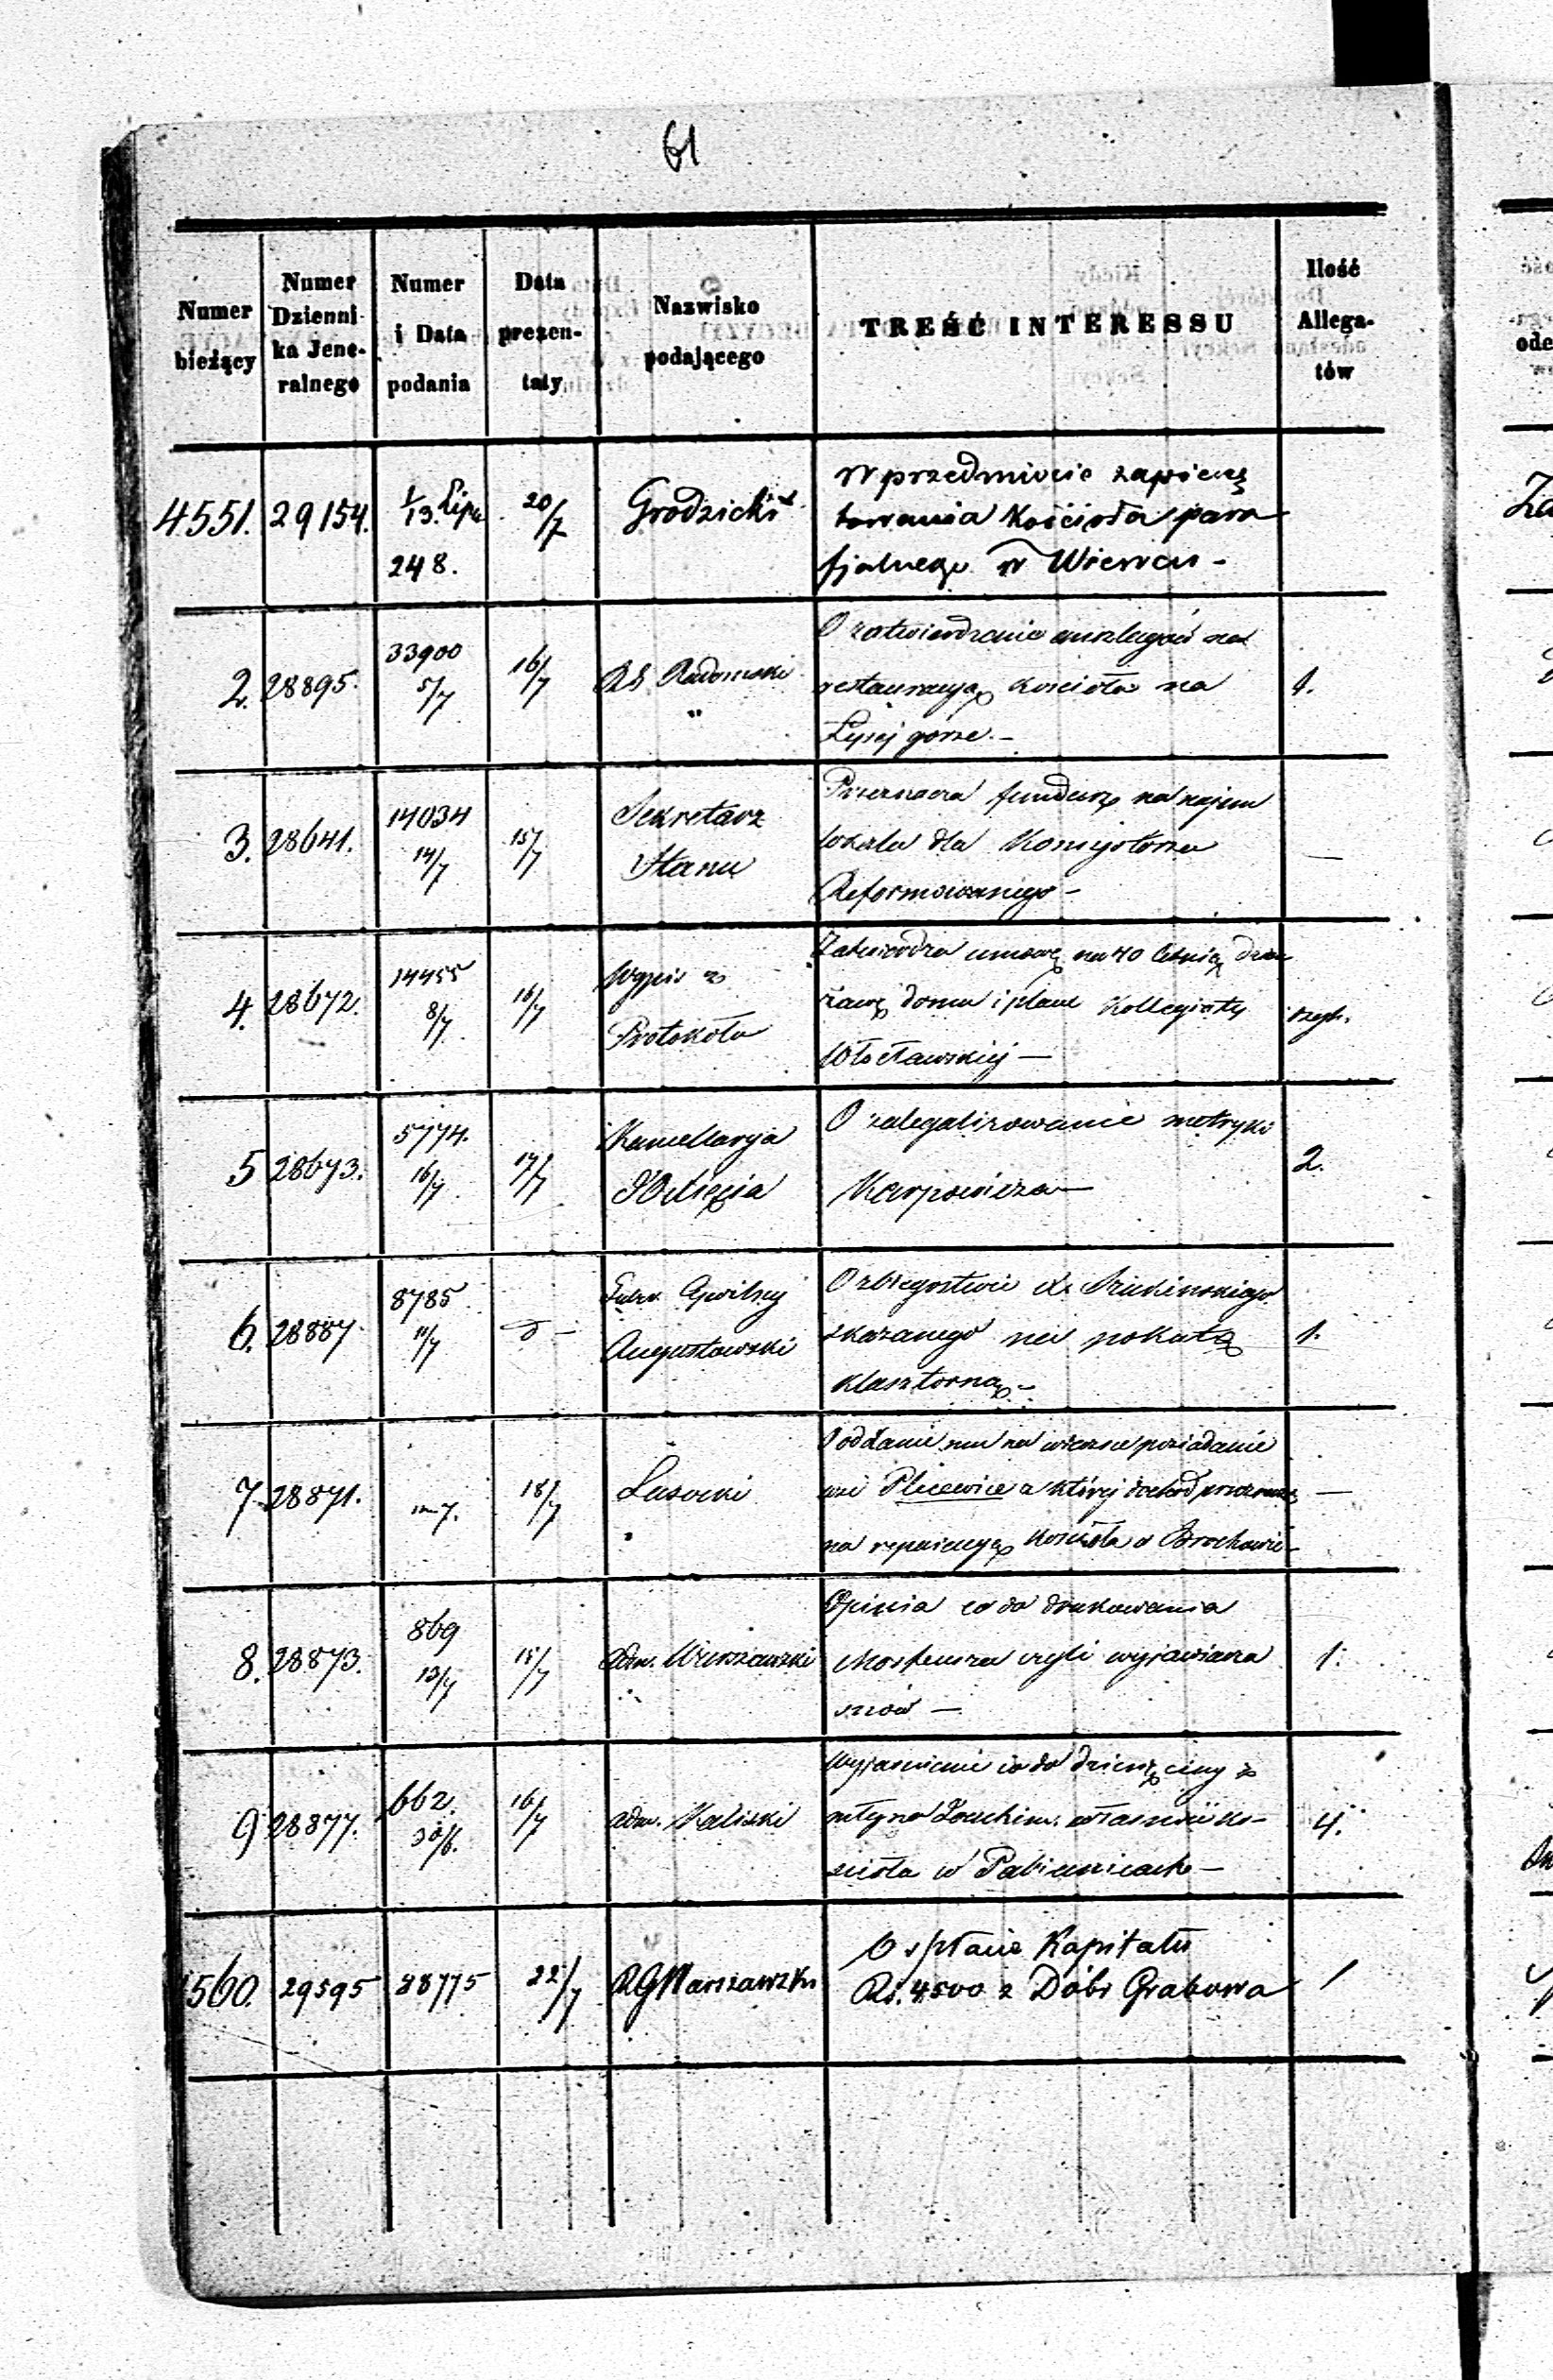 61
Numer bieżący | Numer Dzienni- ka Jene- ralnego | Numer i Data podania | Data prezen- taty | Nazwisko podającego | TREŚĆ INTERESSU | Ilość Allega- tów
4551. | 29154. | 1/13. Lipca 248. | 20/7 | Grodzicki | W przedmiocie zapieczę
towania Kościoła para
fjalnego w Wiewcu -
2. | 28895. | 33900 5/7 | 16/7 | RG Radomski | O zatwierdzenie anszlagów na | 1.
restauracyą kościoła na
Łysej górze. -
3. | 28641. | 14034 14/7 | 15/7 | Sekretarz Stanu | Przeznacza fundusz na najem | —
lokalu dla Konsystorza
Reformowanego -
4. | 28672. | 14455 8/7 | 16/7 | Wypis z Protokołu | Zatwierdza umowę na 40 letnią dzier
żawę domu i placu Kollegiaty
Włocławskiej —
5 | 28673. | 5774. 16/7 | 17/7 | Kancellarya Xięcia | O zalegalizowanie metryki | 2.
Karpowicza —
6. | 28887 | 8785 11/7 | d - | Guber. Cywilny Augustowski | O zbiegostwie X.
skazanego na pokutę | 1.
klasztorną. -
7. | 28871. | 7. | 18/7 | Lasocki | O oddanie mu na wieczne posiadanie | —
wsi Plecewice z której dochód
na reparacyą Kościoła w Brochowie -
8. | 28873. | 869 13/7 | 15/7 | Adm. Warszawski | Opinia co do drukowania | 1.
czyli wyjawiacza
snów —
9 | 28877. | 662. 30/6. | 16/7 | Adm. Kaliski | Wyjaśnienie co do dziesięciny z | 4.
młyna własności ko-
ścioła w Pabianicach —
4560. | 29595 | 88775 | 22/7 | RG Warszawski | O spłacie Kapitału | 1
Rs. 4500 z Dóbr Grabowa